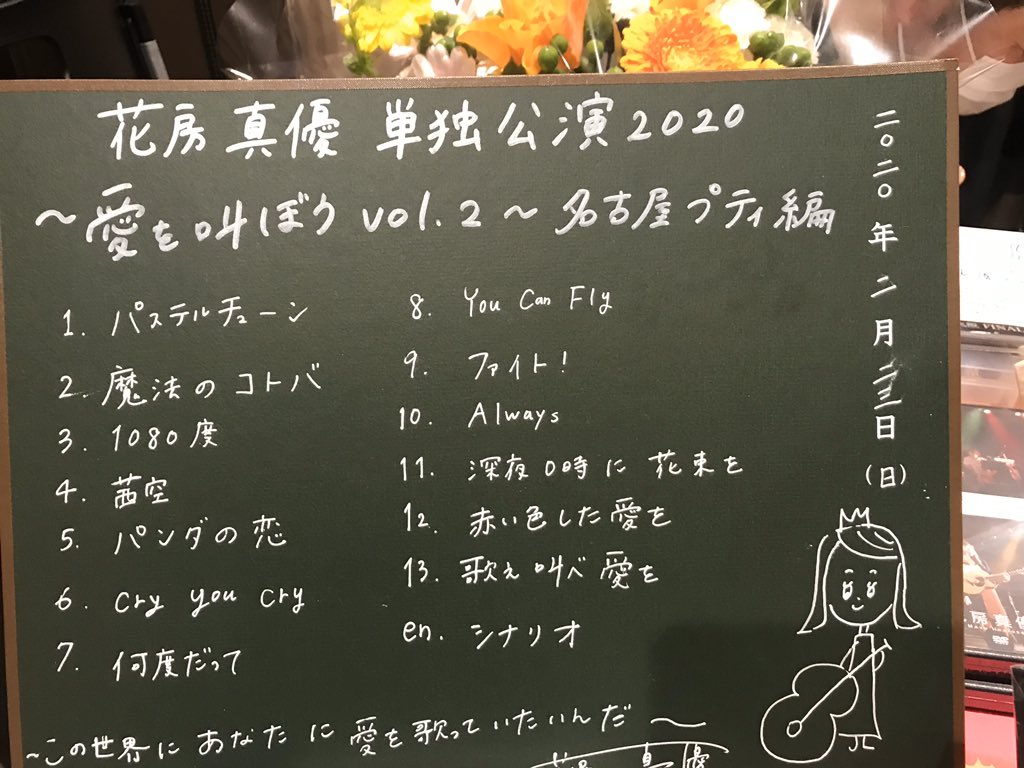 花房真優 単独公演2020
～愛を叫ぼうvol.2～名古屋プティ編
1. パステルチューン
2. 魔法のコトバ
3. 1080度
4. 茜空
5. パンダの恋
6. cry you cry
7. 何度だって
8. You Can Fly
9. ファイト!
10. Always
11. 深夜0時に花束を
12. 赤い色した愛を
13. 歌え叫べ愛を
en. シナリオ
～この世界にあなたに愛を歌っていたいんだ～
二〇二〇年二月二三日(日)